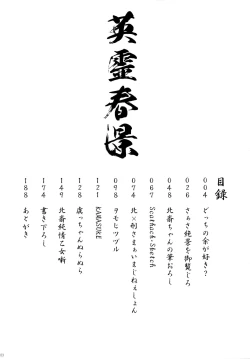 英靈春景
目録
004 どっちの余が好き?
026 さぁさ絶景を御覧じろ
048 北斎ちゃんの筆おろし
067 Scathach-Sketch
074 北×刑さまぁいまじねぇしょん
098 ヲモヒツヅル
121 KAMASUTRE
128 虞っちゃんぬらぬら
149 北斎純情乙女噺
174 書き下ろし
188 あとがき